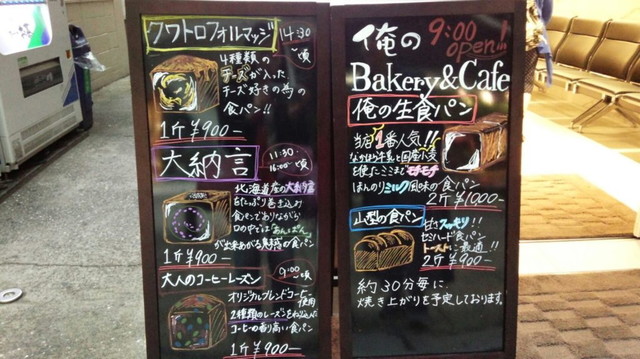 クワトロフォルマッジ
14:30頃
4種類の
チーズが入った
チーズ好きの為の
食パン!!
1斤 ¥900-
大納言
11:30
16:00頃
北海道産の大納言
をたっぷり巻き込み
食パンでありながら
口の中では あんぱん
が出来あがる魅惑の食パン
1斤 ¥900-
大人のコーヒーレーズン
09:00頃
オリジナルブレンドコーヒー
使用
2種類のレーズンを
コーヒーの香り高い食パン
1斤 ¥900-
俺の 9:00
open!!
Bakery&Cafe
俺の生食パン
当店1番人気!!
国産小麦
を使たミミまでモチモチ
ほんのりミルク風味の食パン
2斤 ¥1000-
山型の食パン
甘さスッキリ!!
セミハード食パン
トーストに最適!!
2斤 ¥900-
約30分毎に
焼き上がりを予定しております。